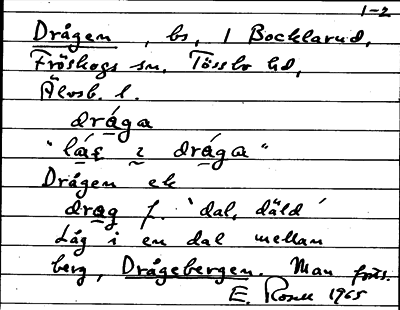 1-2
Drågen, bs, i Bocklarud,
Fröskogs sn, Tössbo hd,
Älvsb. l.
drága
"lá i drága"
Drågen ek
drag f. 'dal, däld'
Låg i en dal mellan
berg, Drågebergen. Man forts.
E. Rosell 1965